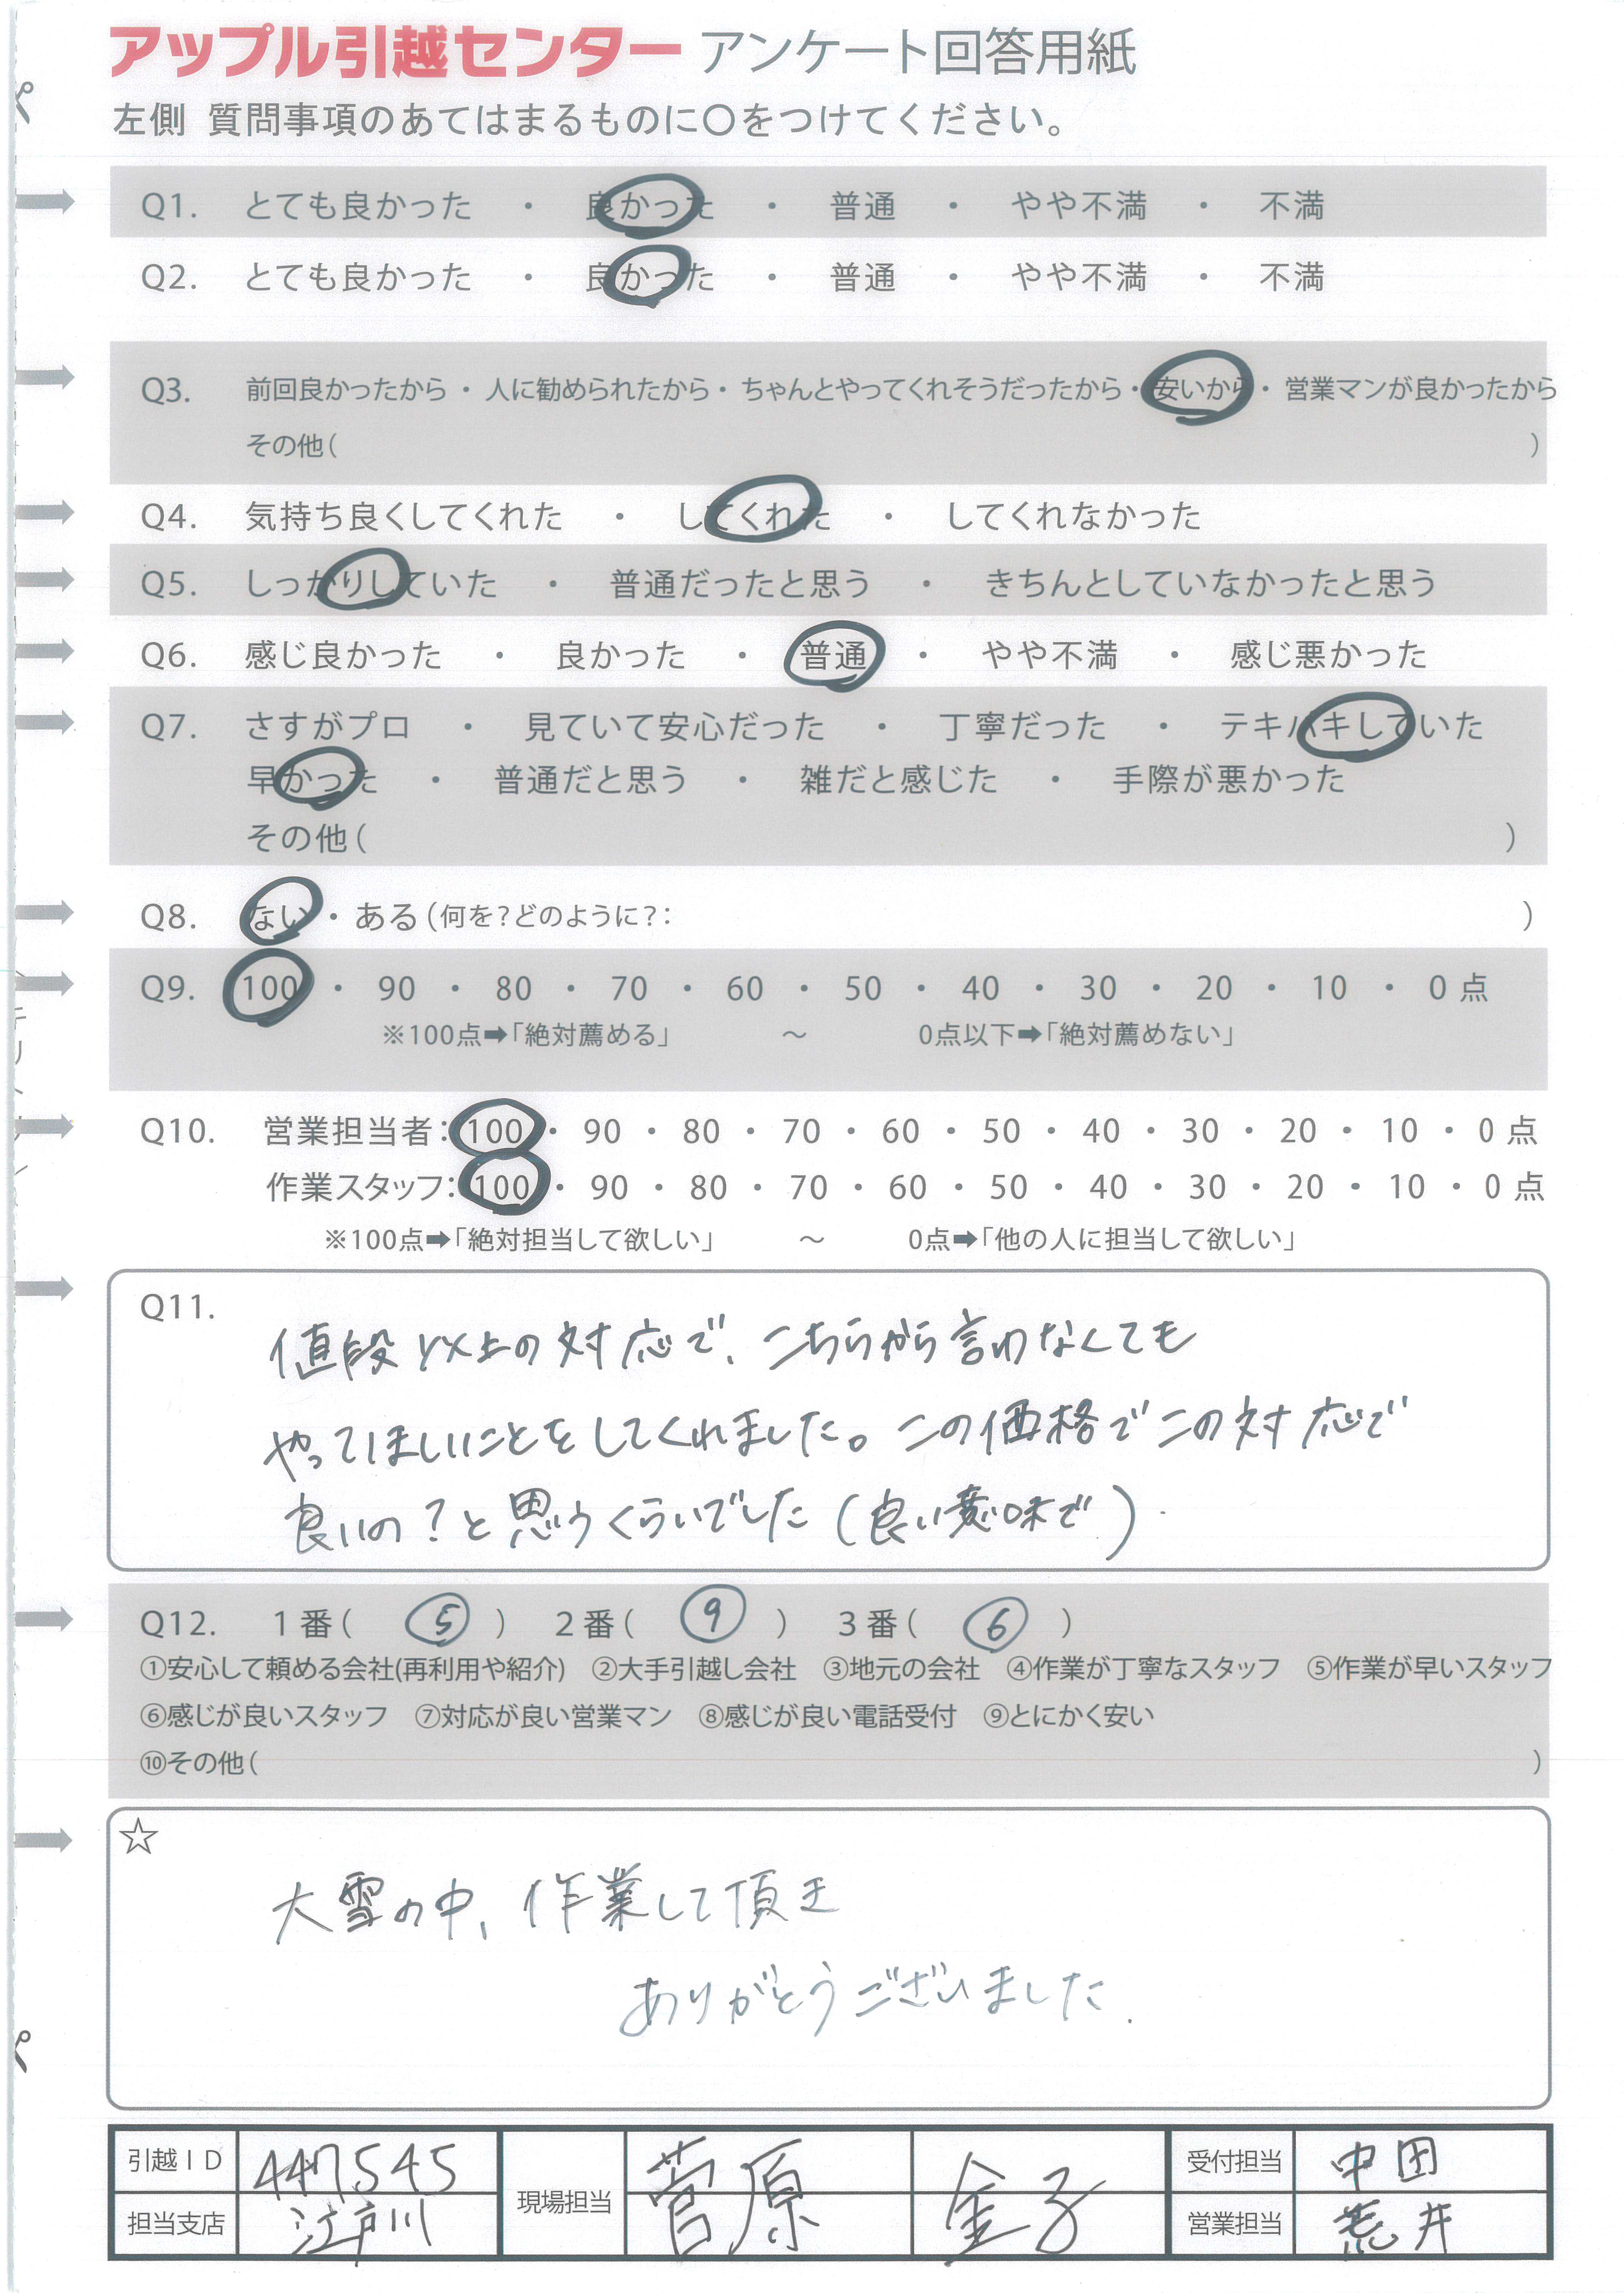 アップル引越センター アンケート回答用紙
左側 質問事項のあてはまるものに〇をつけてください。
Q1. とても良かった ・ 良かった ・ 普通 ・ やや不満 ・ 不満
Q2. とても良かった ・ 良かった ・ 普通 ・ やや不満 ・ 不満
Q3. 前回良かったから ・ 人に勧められたから ・ ちゃんとやってくれそうだったから ・ 安いから ・ 営業マンが良かったから
その他( )
Q4. 気持ち良くしてくれた ・ してくれた ・ してくれなかった
Q5. しっかりしていた ・ 普通だったと思う ・ きちんとしていなかったと思う
Q6. 感じ良かった ・ 良かった ・ 普通 ・ やや不満 ・ 感じ悪かった
Q7. さすがプロ ・ 見ていて安心だった ・ 丁寧だった ・ テキパキしていた
早かった ・ 普通だと思う ・ 雑だと感じた ・ 手際が悪かった
その他( )
Q8. ない ・ ある (何を?どのように?: )
Q9. 100 ・ 90 ・ 80 ・ 70 ・ 60 ・ 50 ・ 40 ・ 30 ・ 20 ・ 10 ・ 0 点
※100点➡「絶対薦める」 〜 0点以下➡「絶対薦めない」
Q10. 営業担当者: 100 ・ 90 ・ 80 ・ 70 ・ 60 ・ 50 ・ 40 ・ 30 ・ 20 ・ 10 ・ 0 点
作業スタッフ: 100 ・ 90 ・ 80 ・ 70 ・ 60 ・ 50 ・ 40 ・ 30 ・ 20 ・ 10 ・ 0 点
※100点➡「絶対担当して欲しい」 〜 0点➡「他の人に担当して欲しい」
Q11.
値段以上の対応で、こちらから言わなくても
やってほしいことをしてくれました。この価格でこの対応で
良いの?と思うくらいでした(良い意味で).
Q12. 1番( ⑤ ) 2番( ⑨ ) 3番( ⑥ )
①安心して頼める会社(再利用や紹介) ②大手引越し会社 ③地元の会社 ④作業が丁寧なスタッフ ⑤作業が早いスタッフ
⑥感じが良いスタッフ ⑦対応が良い営業マン ⑧感じが良い電話受付 ⑨とにかく安い
⑩その他( )
☆
大雪の中、作業して頂き
ありがとうございました.
引越ID 447545 現場担当 菅原 金子 受付担当 中田
担当支店 江戸川 営業担当 荒井